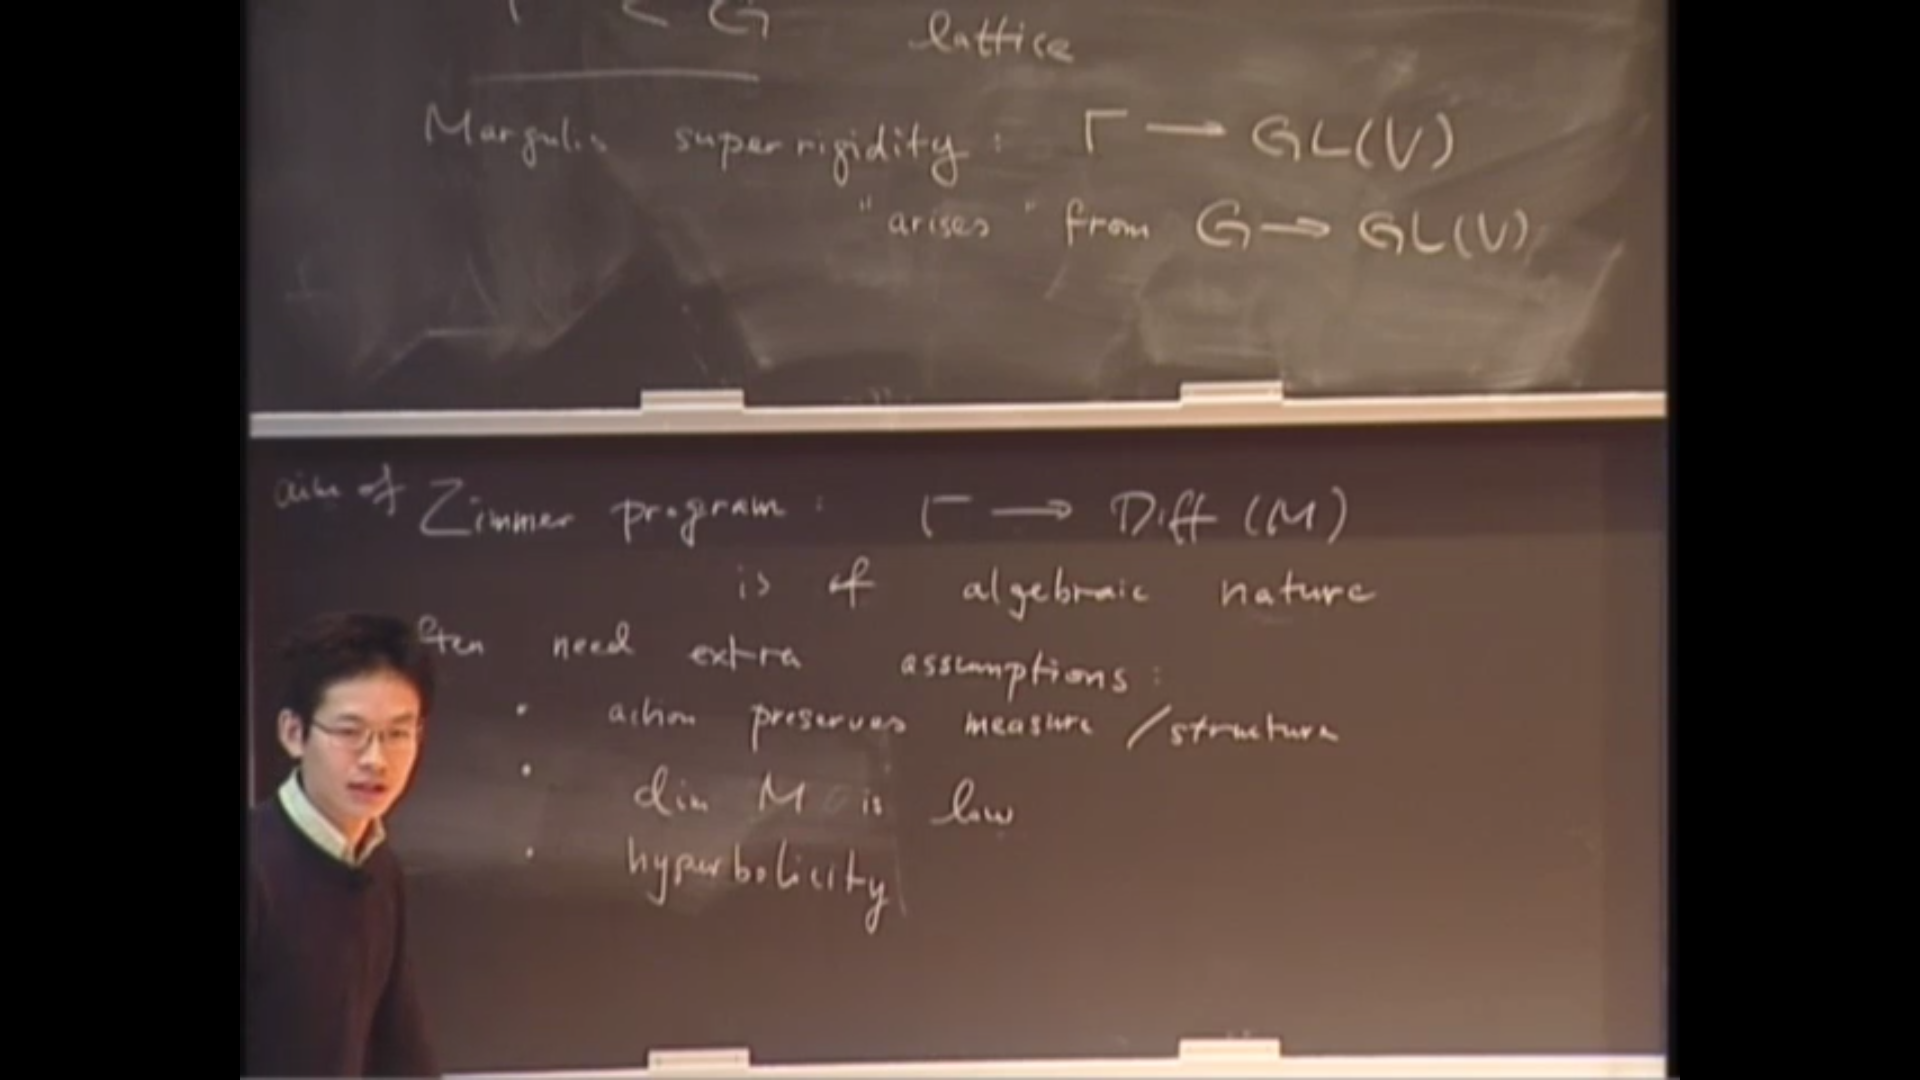 Γ < G lattice
Margulis superrigidity : Γ → GL(V)
"arises" from G → GL(V)
aim of Zimmer program : Γ → Diff (M)
is of algebraic nature
often need extra assumptions :
• action preserves measure / structure
• dim M is low
• hyperbolicity